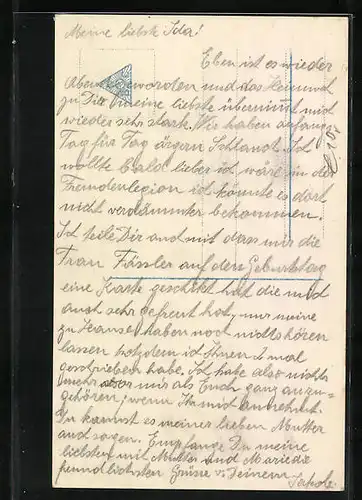 Meine liebste Ida!
Eben ist es wieder
Abend geworden und das Heimweh
zu Dir meine liebste übernimt mich
wieder sehr stark. Wir haben anfangs
Tag für Tag ärgern Ich
wollte bald lieber ich wäre in der
Fremdenlegion ich könnte es dort
nicht verdammter bekommen.
Ich teile Dir auch mit dass mir die
Frau Fässler auf den Geburtstag
eine Karte geschikt hat die mich
auch sehr gefreut hat, nur meine
zu Hause haben noch nichts hören
lassen trotzdem ich Ihnen mal
geschrieben habe. Ich habe also nichts
mehr mir als Euch ganz anzu-
gehören, wenn Ihr mich annehmt.
Du kannst es meiner lieben Mutter
auch sagen. Empfange Du meine
liebsten mit Mutter und Marie die
freundlichsten Grüsse v. Deinem